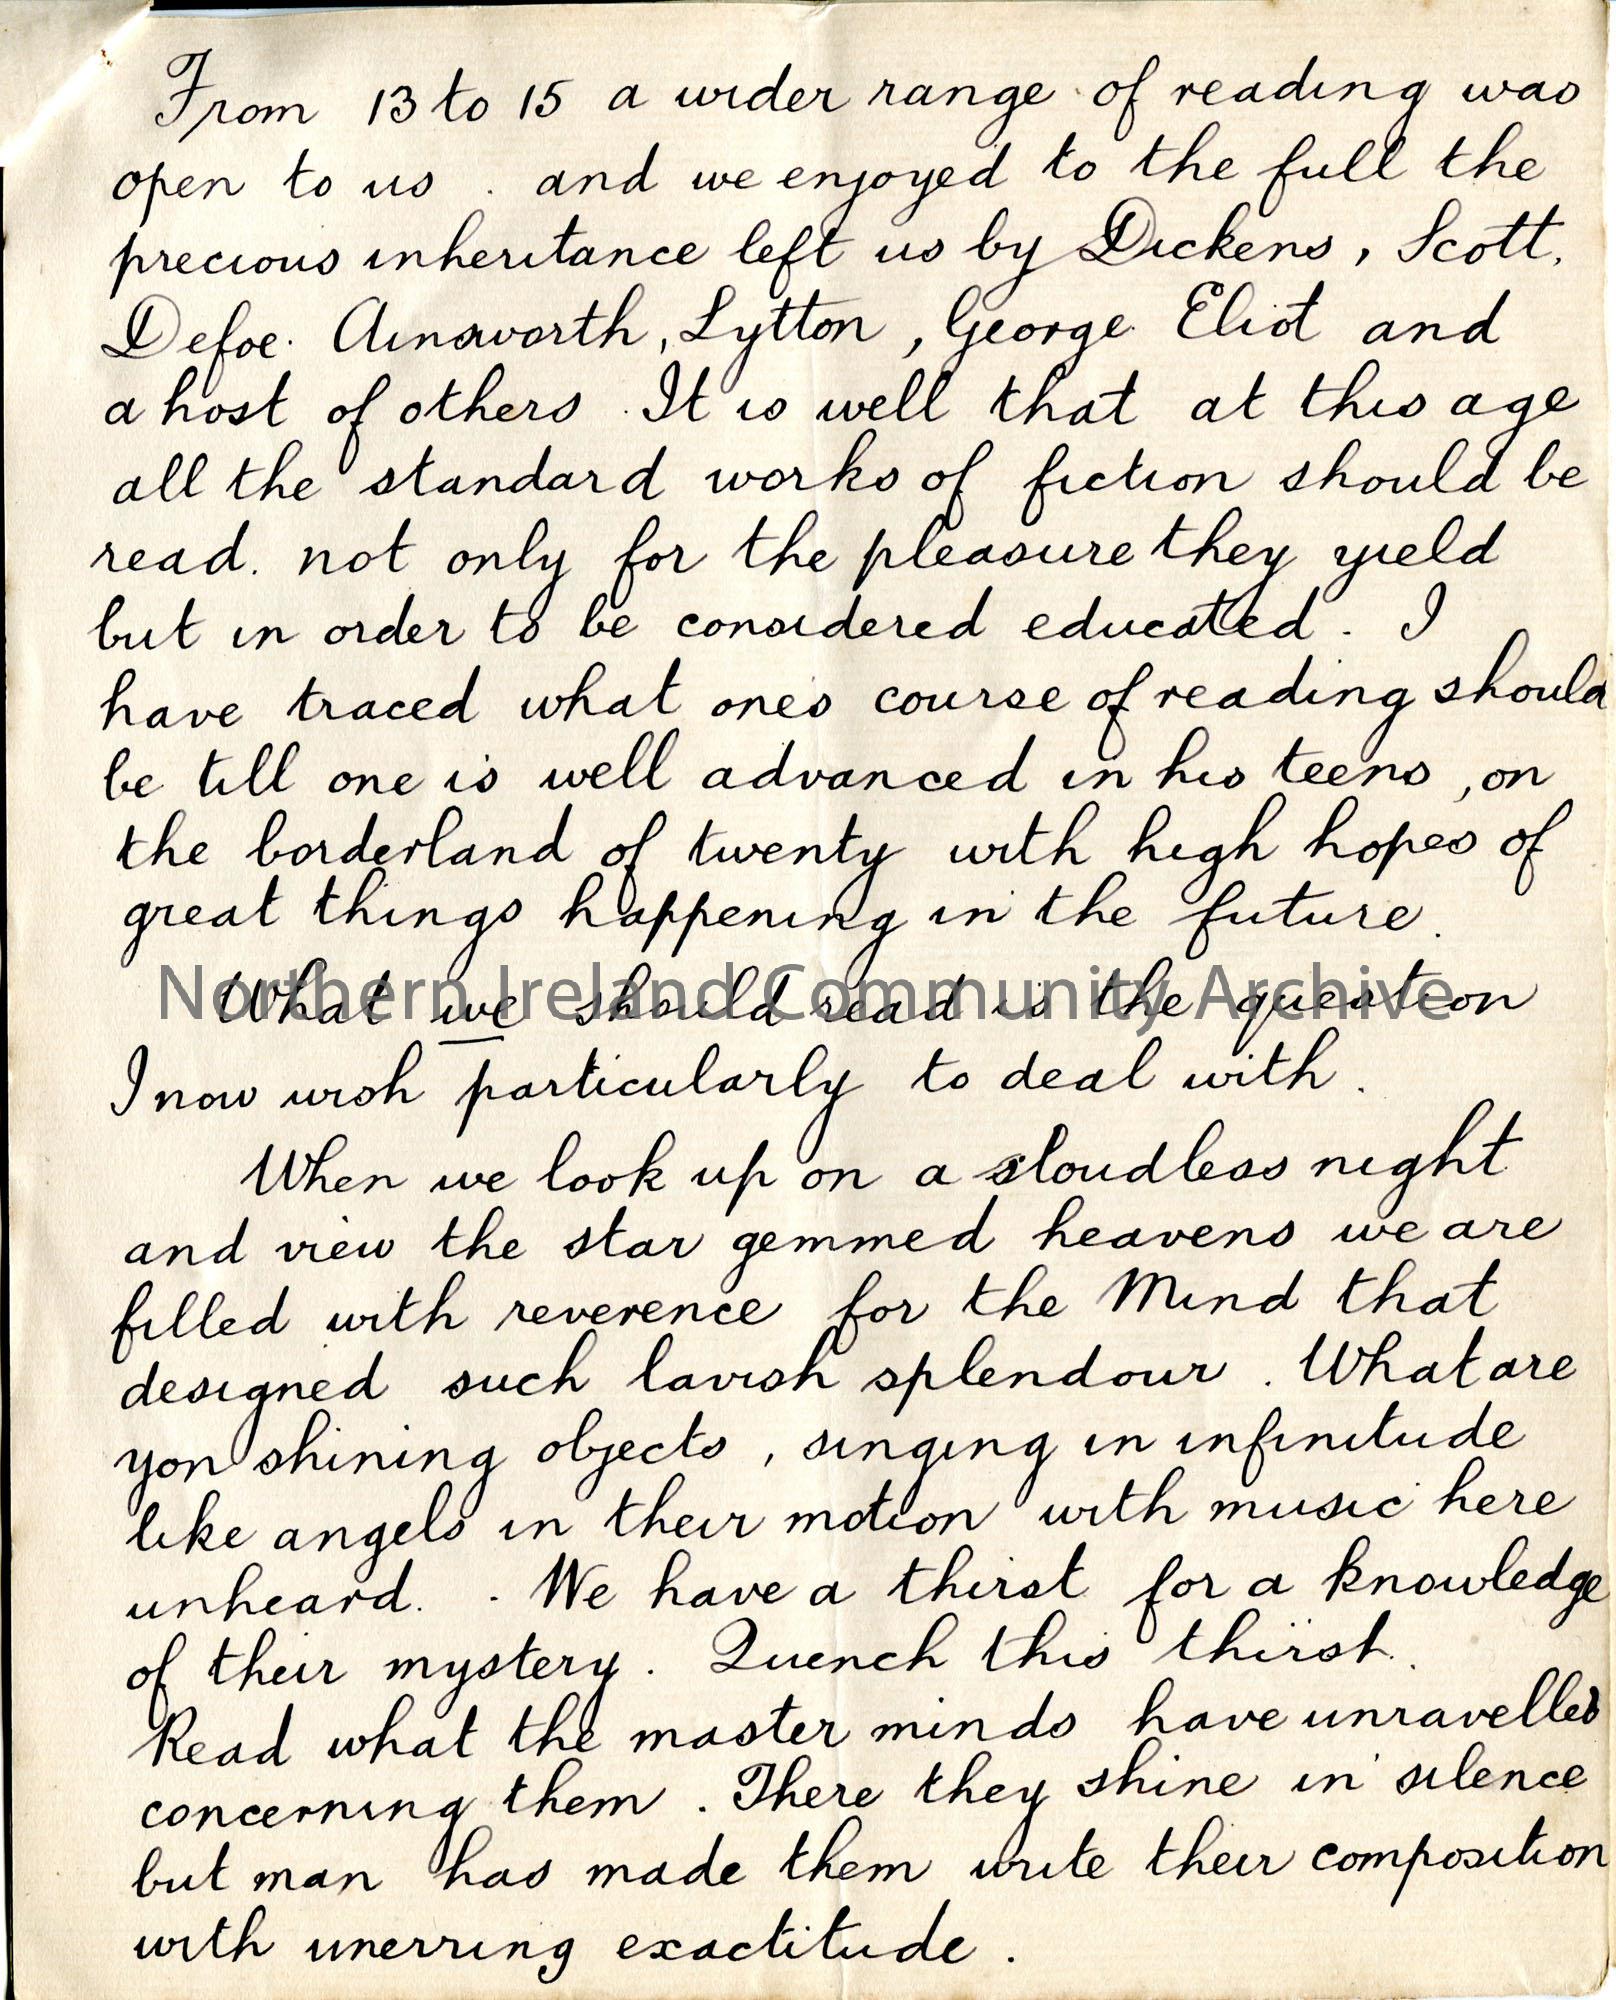 From 13 to 15 a wider range of reading was
open to us . and we enjoyed to the full the
precious inheritance left us by Dickens, Scott,
Defoe. Ainsworth, Lytton, George Eliot and
a host of others. It is well that at this age
all the standard works of fiction should be
read. not only for the pleasure they yield
but in order to be considered educated. I
have traced what ones course of reading should
be till one is well advanced in his teens, on
the borderland of twenty with high hopes of
great things happening in the future.
What we should read is the question
Northern Ireland Community Archive
I now wish particularly to deal with.
When we look up on a cloudless night
and view the star gemmed heavens we are
filled with reverence for the Mind that
designed such lavish splendour. What are
yon shining objects, singing in infinitude
like angels in their motion with music here
unheard. . We have a thirst for a knowledge
of their mystery. Quench this thirst.
Read what the master minds have unravelled
concerning them. There they shine in silence
but man has made them write their composition
with unerring exactitude.